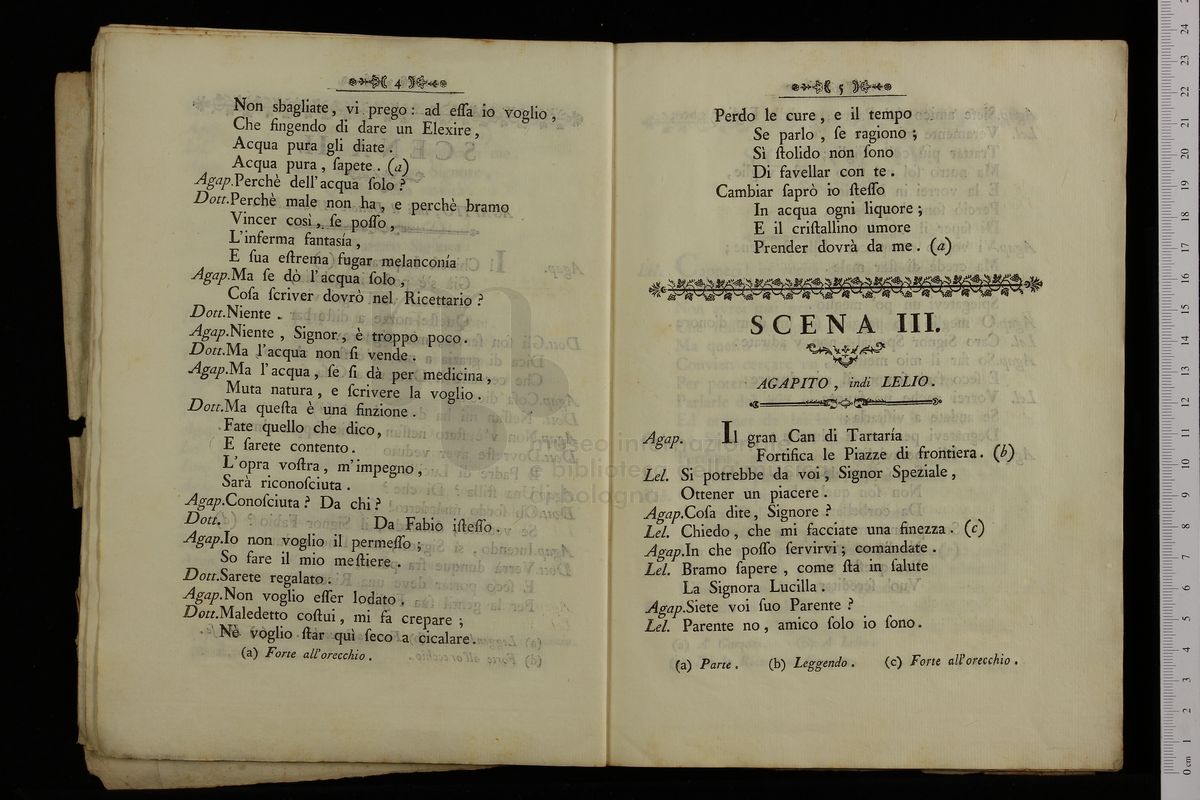 4
Non sbagliate, vi prego: ad eſſa io voglio,
Che fingendo di dare un Elexire,
Acqua pura gli diate.
Acqua pura, ſapete. (a)
Agap.Perchè dell'acqua ſolo?
Dott.Perchè male non ha, e perchè bramo
Vincer così, ſe poſſo,
L'inferma fantasía,
E ſua eſtrema fugar melanconía
Agap.Ma ſe dò l'acqua ſolo,
Coſa ſcriver dovrò nel Ricettario?
Dott.Niente.
Agap.Niente, Signor, è troppo poco.
Dott.Ma l'acqua non ſi vende.
Agap.Ma l'acqua, ſe ſi dà per medicina,
Muta natura, e ſcrivere la voglio.
Dott.Ma queſta è una finzione.
Fate quello che dico,
E ſarete contento.
L'opra voſtra, m'impegno,
Sarà riconoſciuta.
Agap.Conoſciuta? Da chi?
Dott. Da Fabio iſteſſo.
Agap.Io non voglio il permeſſo;
So fare il mio meſtiere.
Dott.Sarete regalato.
Agap.Non voglio eſſer lodato.
Dott.Maledetto coſtui, mi fa crepare;
Nè voglio ſtar quì ſeco a cicalare.
(a) Forte all'orecchio.
5
Perdo le cure, e il tempo
Se parlo, ſe ragiono;
Sì ſtolido non ſono
Di favellar con te.
Cambiar ſaprò io ſteſſo
In acqua ogni liquore;
E il criſtallino umore
Prender dovrà da me. (a)
SCENA III.
AGAPITO, indi LELIO.
Agap. Il gran Can di Tartaría
Fortifica le Piazze di frontiera. (b)
Lel. Si potrebbe da voi, Signor Speziale,
Ottener un piacere.
Agap.Coſa dite, Signore?
Lel. Chiedo, che mi facciate una finezza. (c)
Agap.In che poſſo ſervirvi; comandate.
Lel. Bramo ſapere, come ſta in ſalute
La Signora Lucilla.
Agap.Siete voi ſuo Parente?
Lel. Parente no, amico ſolo io ſono.
(a) Parte. (b) Leggendo. (c) Forte all'orecchio.